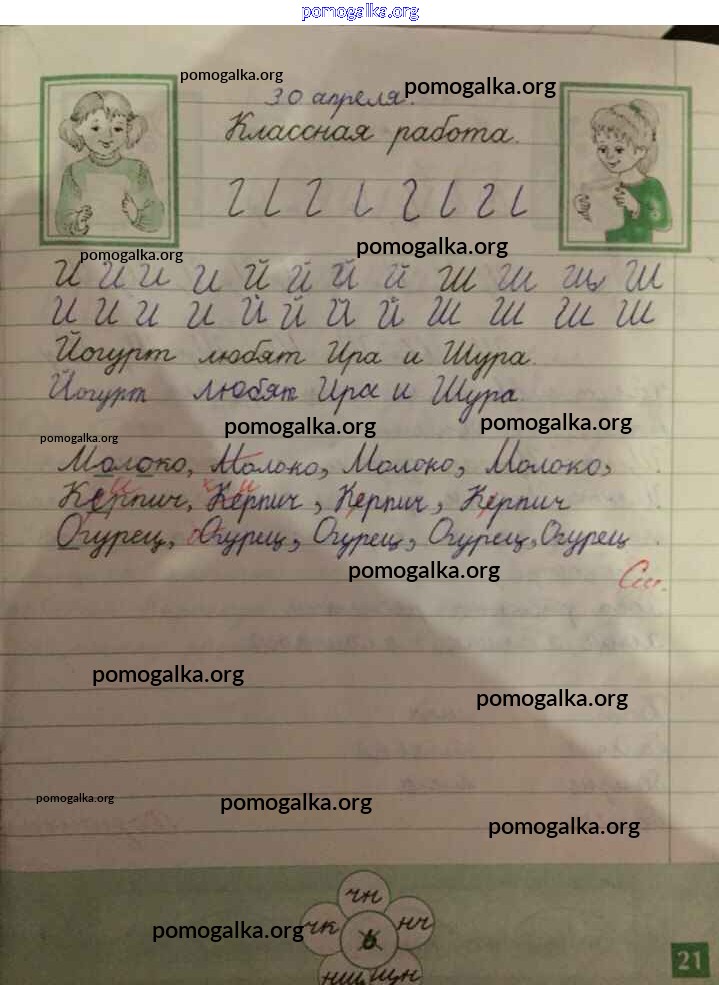 pomogalka.org
pomogalka.org
30 апреля.
pomogalka.org
Классная работа.
pomogalka.org
pomogalka.org
И И И И Й Й Й Й Ш Ш Ш Ш
И И И И Й Й Й Й Ш Ш Ш Ш
Йогурт любят Ира и Шура.
Йогурт любят Ира и Шура.
pomogalka.org
pomogalka.org
pomogalka.org
Молоко, Молоко, Молоко, Молоко,
Керпич, Керпич, Керпич, Керпич
Огурец, Огурец, Огурец, Огурец, Огурец
pomogalka.org
См.
pomogalka.org
pomogalka.org
pomogalka.org
pomogalka.org
pomogalka.org
чн
чк
нч
pomogalka.org
ь
нщ
щн
21